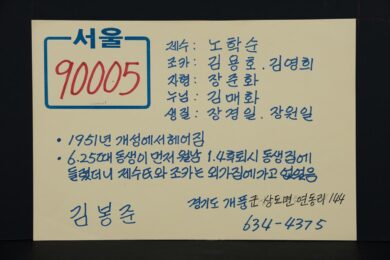 서울
90005
제수: 노학순
조카: 김용호. 김영희
자형: 장준화
누님: 김매화
생질: 장경일. 장원일
• 1951년 개성에서헤어짐
• 6.25때 동생이 먼저 월남 1.4후퇴시 동생집에
들렸더니 제수氏와 조카는 외가집에가고 없었음
김봉준
경기도 개풍군 상도면 연동리 144
634-4375